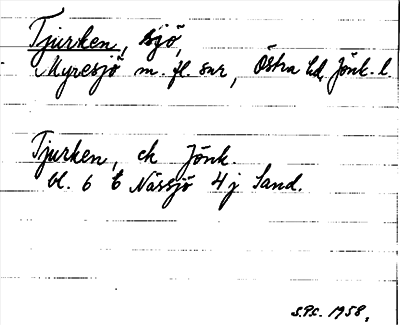 Tjurken, sjö,
Myresjö m. fl. snr, Östra hd, Jönk. l.
Tjurken, ek Jönk.
bl. 6 Nässjö 4 j Sand.
S.P.S. 1958.